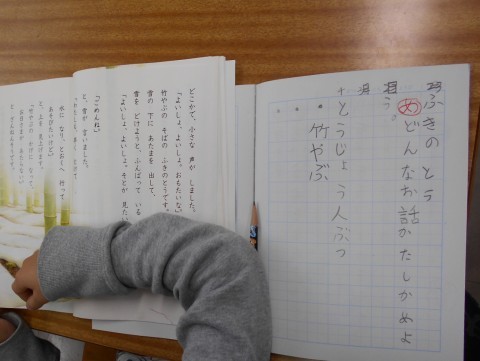 ふきのとう
めどんなお話かたしかめよ
う。
とうじょう人ぶつ
竹やぶ
どこかで、小さな 声が しました。
「よいしょ、よいしょ。おもたいな。」
竹やぶの そばの ふきのとうです。
雪の 下に あたまを 出して、
雪を どけようと、ふんばって いる
「よいしょ、よいしょ。そとが 見たい
「ごめんね。」
と、雪が 言いました。
「わたしも、早く とけて
水に なり、とおくへ 行って
あそびたいけど。」
と、上を 見上げます。
「竹やぶの かげに なって、
お日さまが あたらない。」
と、ざんねんそうです。